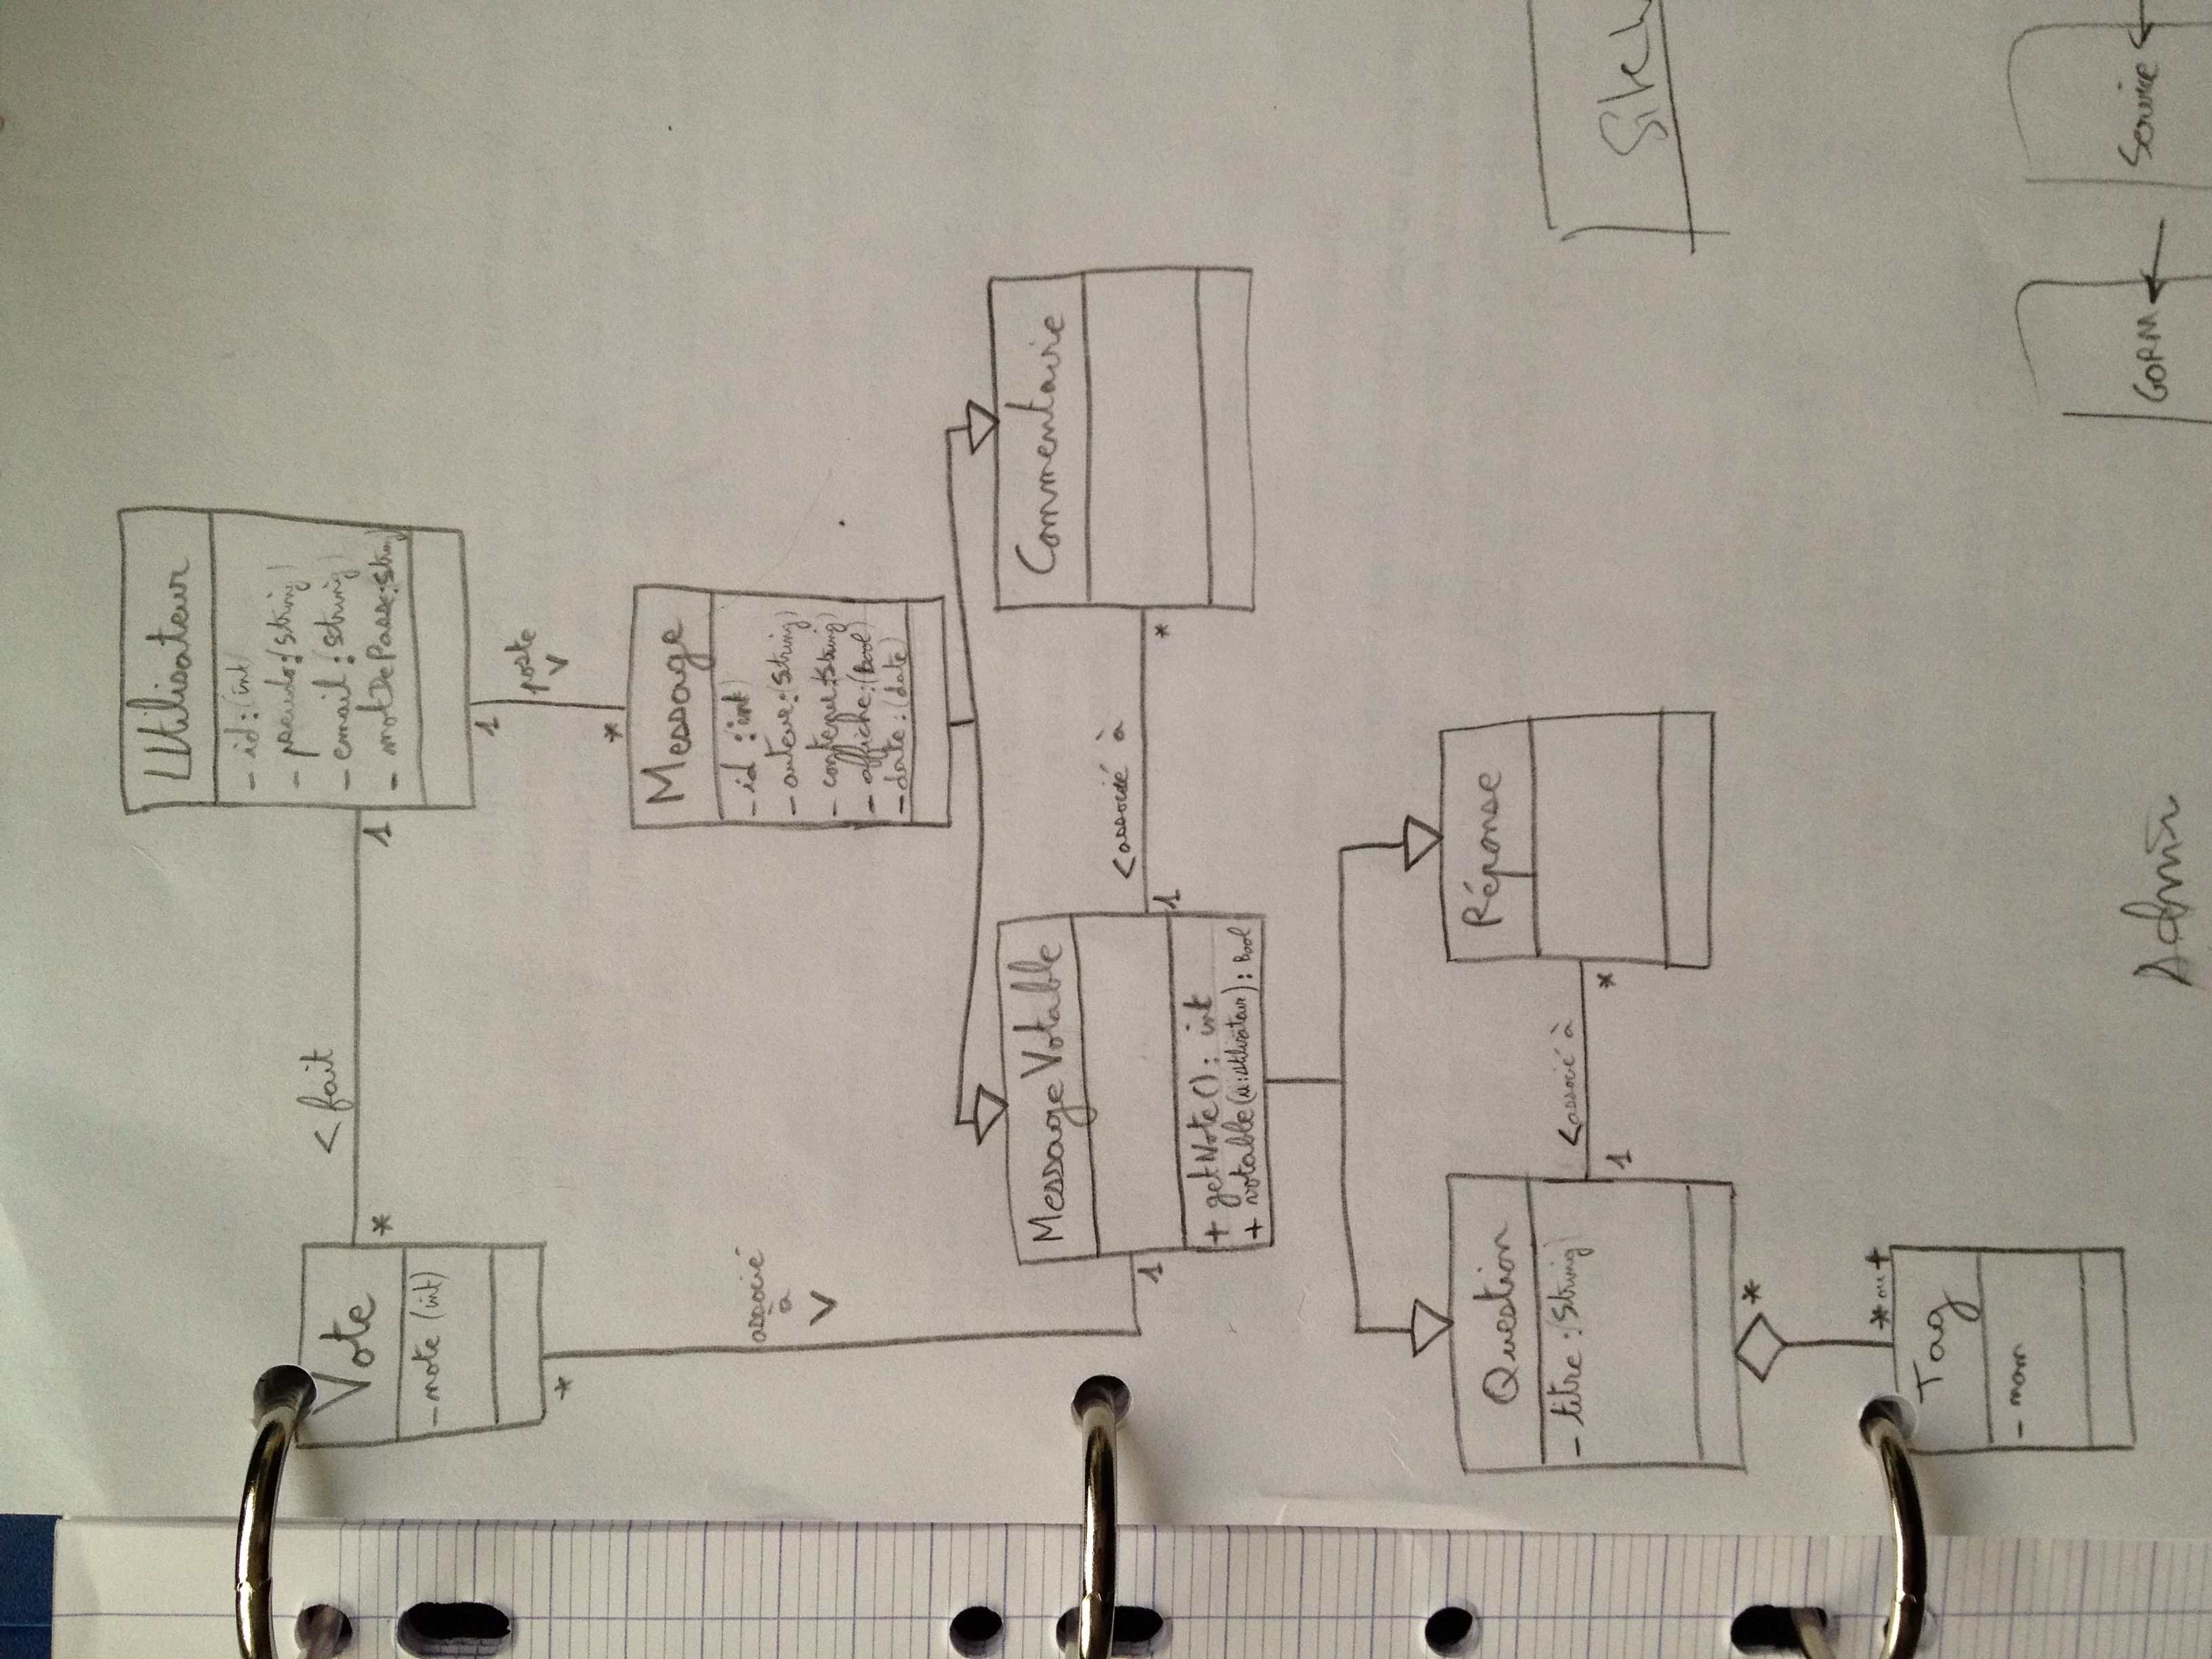 Utilisateur
- id : (int)
- pseudo : (String)
- email : (String)
- motDePasse : String)
Vote
- note (int)
< fait
*
1
*
1
poste
V
*
associé
à
V
Message
- id : (int)
- auteur : (String)
- contenu : (String)
- affiche : (Bool)
- date : (date)
MessageVotable
+ getNote() : int
+ votable(u:Utilisateur) : Bool
1
1
< associé à
*
Commentaire
Question
- titre : (String)
< associé à
1
*
Réponse
*
* ou +
Tag
- nom
Admin
GORM
Service